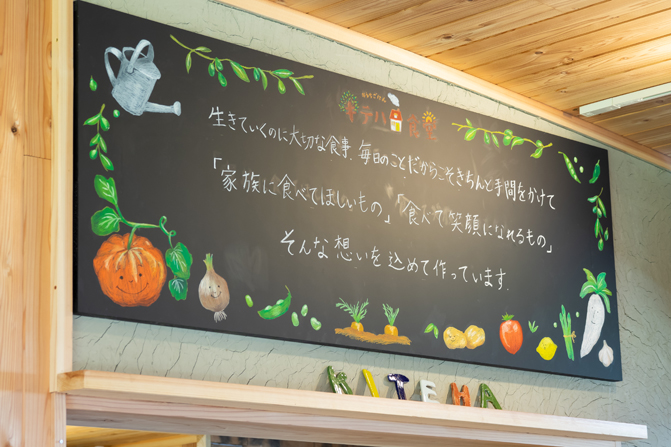 キテハ食堂
生きていくのに大切な食事、毎日のことだからこそきちんと手間をかけて
「家族に食べてほしいもの」「食べて笑顔になれるもの」
そんな想いを込めて作っています。
KITEHA